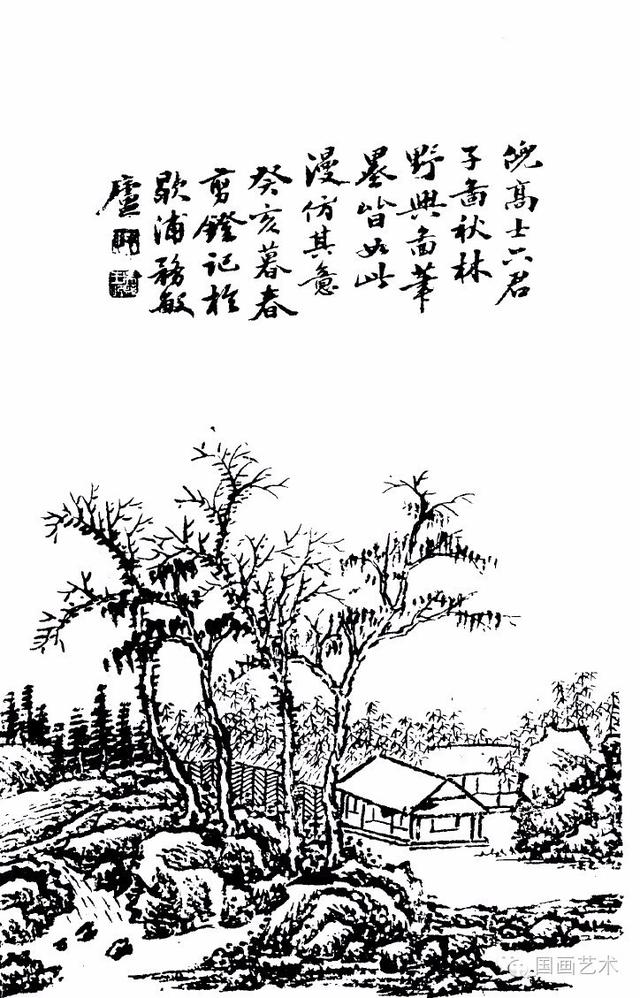 倪高士六君
子啚秋林
野興啚筆
墨皆如此
漫仿其意
癸亥暮春
剪鐙記於
歇浦務敏
廬
国画艺术